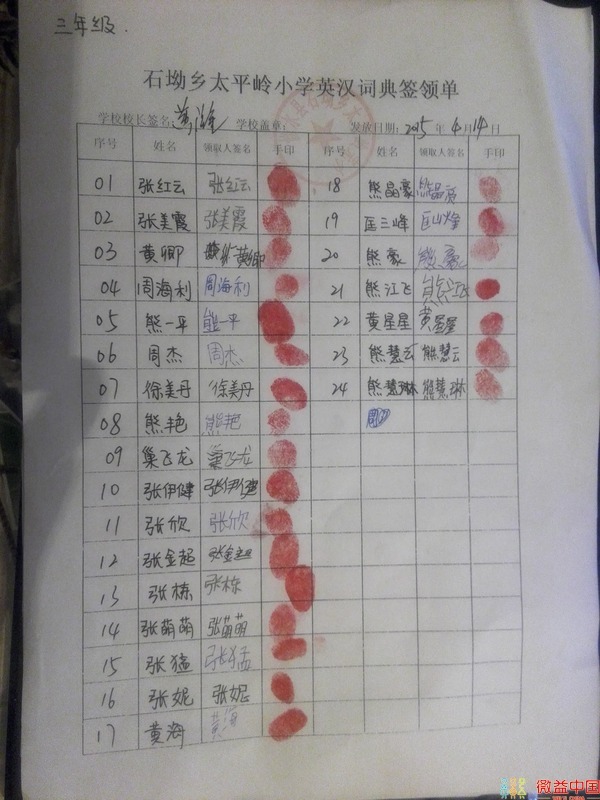 三年级.
石坳乡太平岭小学英汉词典签领单
学校校长签名: 学校盖章: 发放日期: 2015 年 4 月 14 日
序号 姓名 领取人签名 手印 序号 姓名 领取人签名 手印
01 张红云 张红云 18 熊晶豪 熊晶豪
02 张美霞 张美霞 19 匡三峰 匡山烽
03 黄卿 黄卿 20 熊豪 熊豪
04 周海利 周海利 21 熊江飞 熊江飞
05 熊一平 熊一平 22 黄星星 黄星星
06 周杰 周杰 23 熊慧云 熊慧云
07 徐美丹 徐美丹 24 熊慧琳 熊慧琳
08 熊艳 熊艳
09 巢飞龙 巢飞龙
10 张伊健 张伊健
11 张欣 张欣
12 张金超 张金超
13 张栋 张栋
14 张萌萌 张萌萌
15 张猛 张猛
16 张妮 张妮
17 黄海 黄海
微益中国